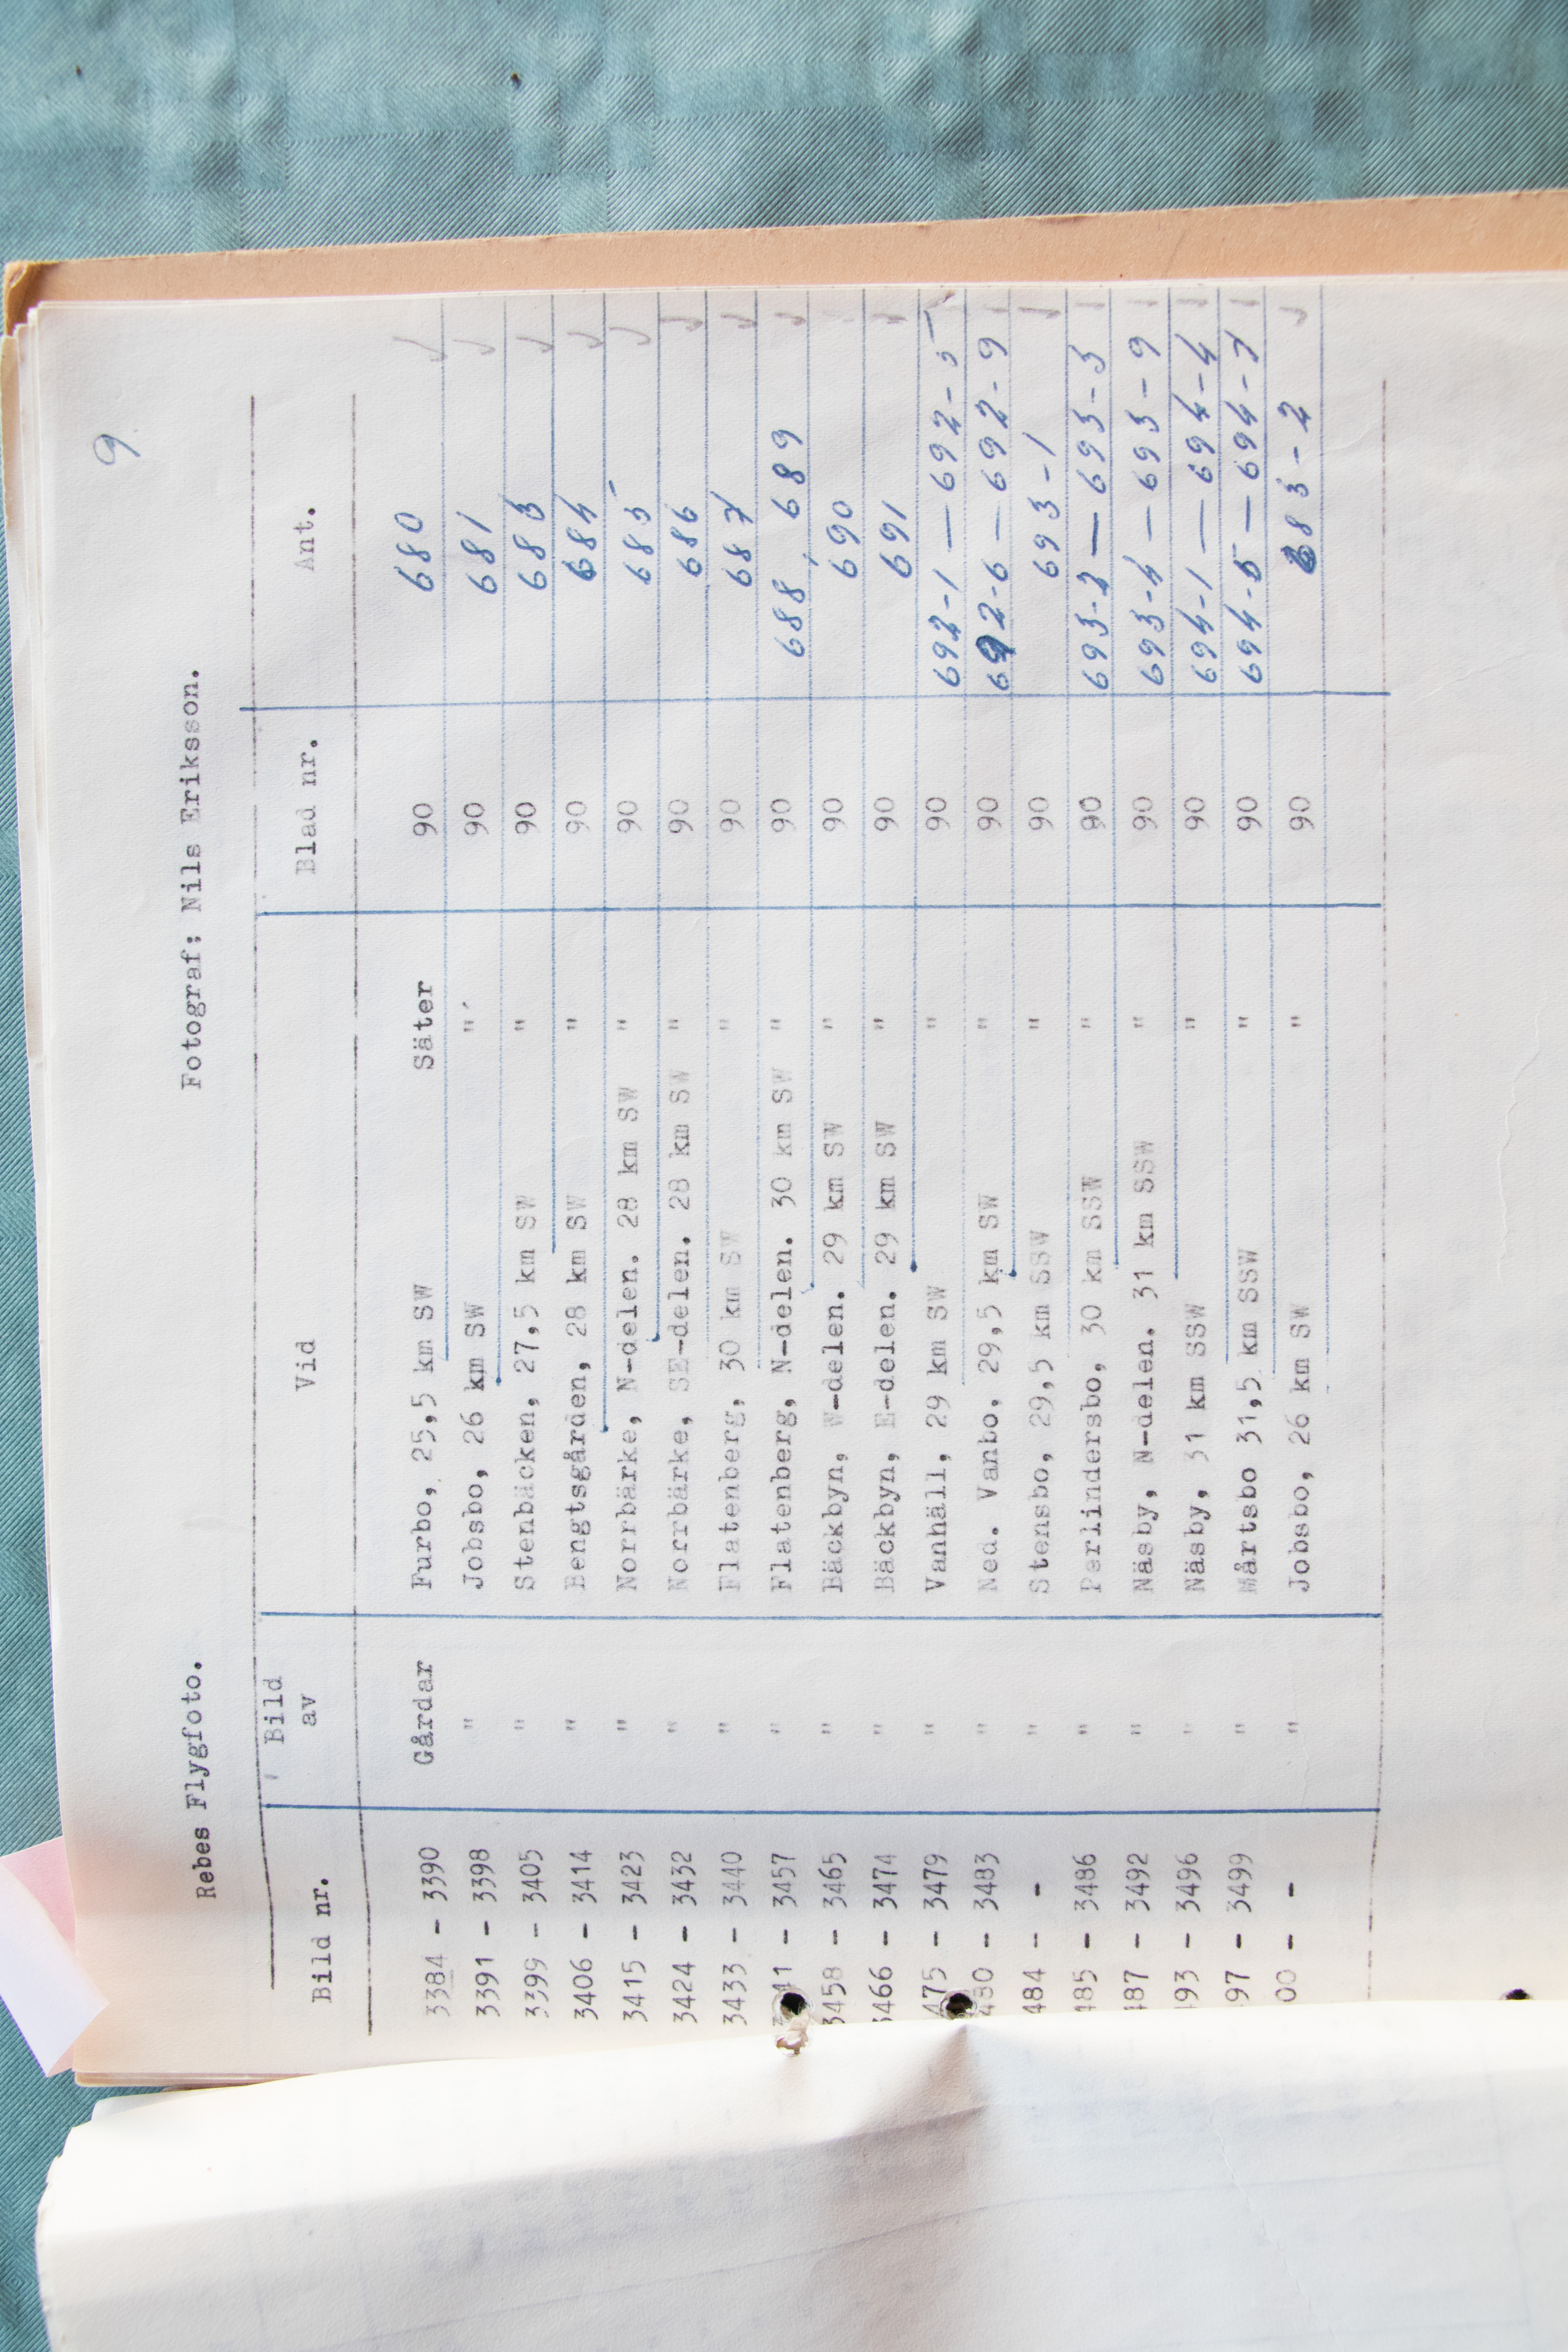 9
Rebes Flygfoto. Fotograf: Nils Eriksson.
Bild nr. Bild av Vid Blad nr. Ant.
3384 - 3390 Gårdar Furbo, 25,5 km SW Säter 90 680
3391 - 3398 " Jobsbo, 26 km SW " 90 681
3399 - 3405 " Stenbäcken, 27,5 km SW " 90 683
3406 - 3414 " Bengtsgården, 28 km SW " 90 684
3415 - 3423 " Norrbärke, N-delen. 28 km SW " 90 685
3424 - 3432 " Norrbärke, SE-delen. 28 km SW " 90 686
3433 - 3440 " Flatenberg, 30 km SW " 90 687
41 - 3457 " Flatenberg, N-delen. 30 km SW " 90 688, 689
3458 - 3465 " Bäckbyn, W-delen. 29 km SW " 90 690
3466 - 3474 " Bäckbyn, E-delen. 29 km SW " 90 691
475 - 3479 " Vanhäll, 29 km SW " 90 692-1 — 692-5
480 - 3483 " Ned. Vanbo, 29,5 km SW " 90 692-6 — 692-9
484 - - " Stensbo, 29,5 km SSW " 90 693-1
485 - 3486 " Perlindersbo, 30 km SSW " 90 693-2 — 693-3
487 - 3492 " Näsby, N-delen. 31 km SSW " 90 693-4 — 693-9
93 - 3496 " Näsby, 31 km SSW " 90 694-1 — 694-4
97 - 3499 " Mårtsbo 31,5 km SSW " 90 694-5 — 694-7
00 - - " Jobsbo, 26 km SW " 90 683-2